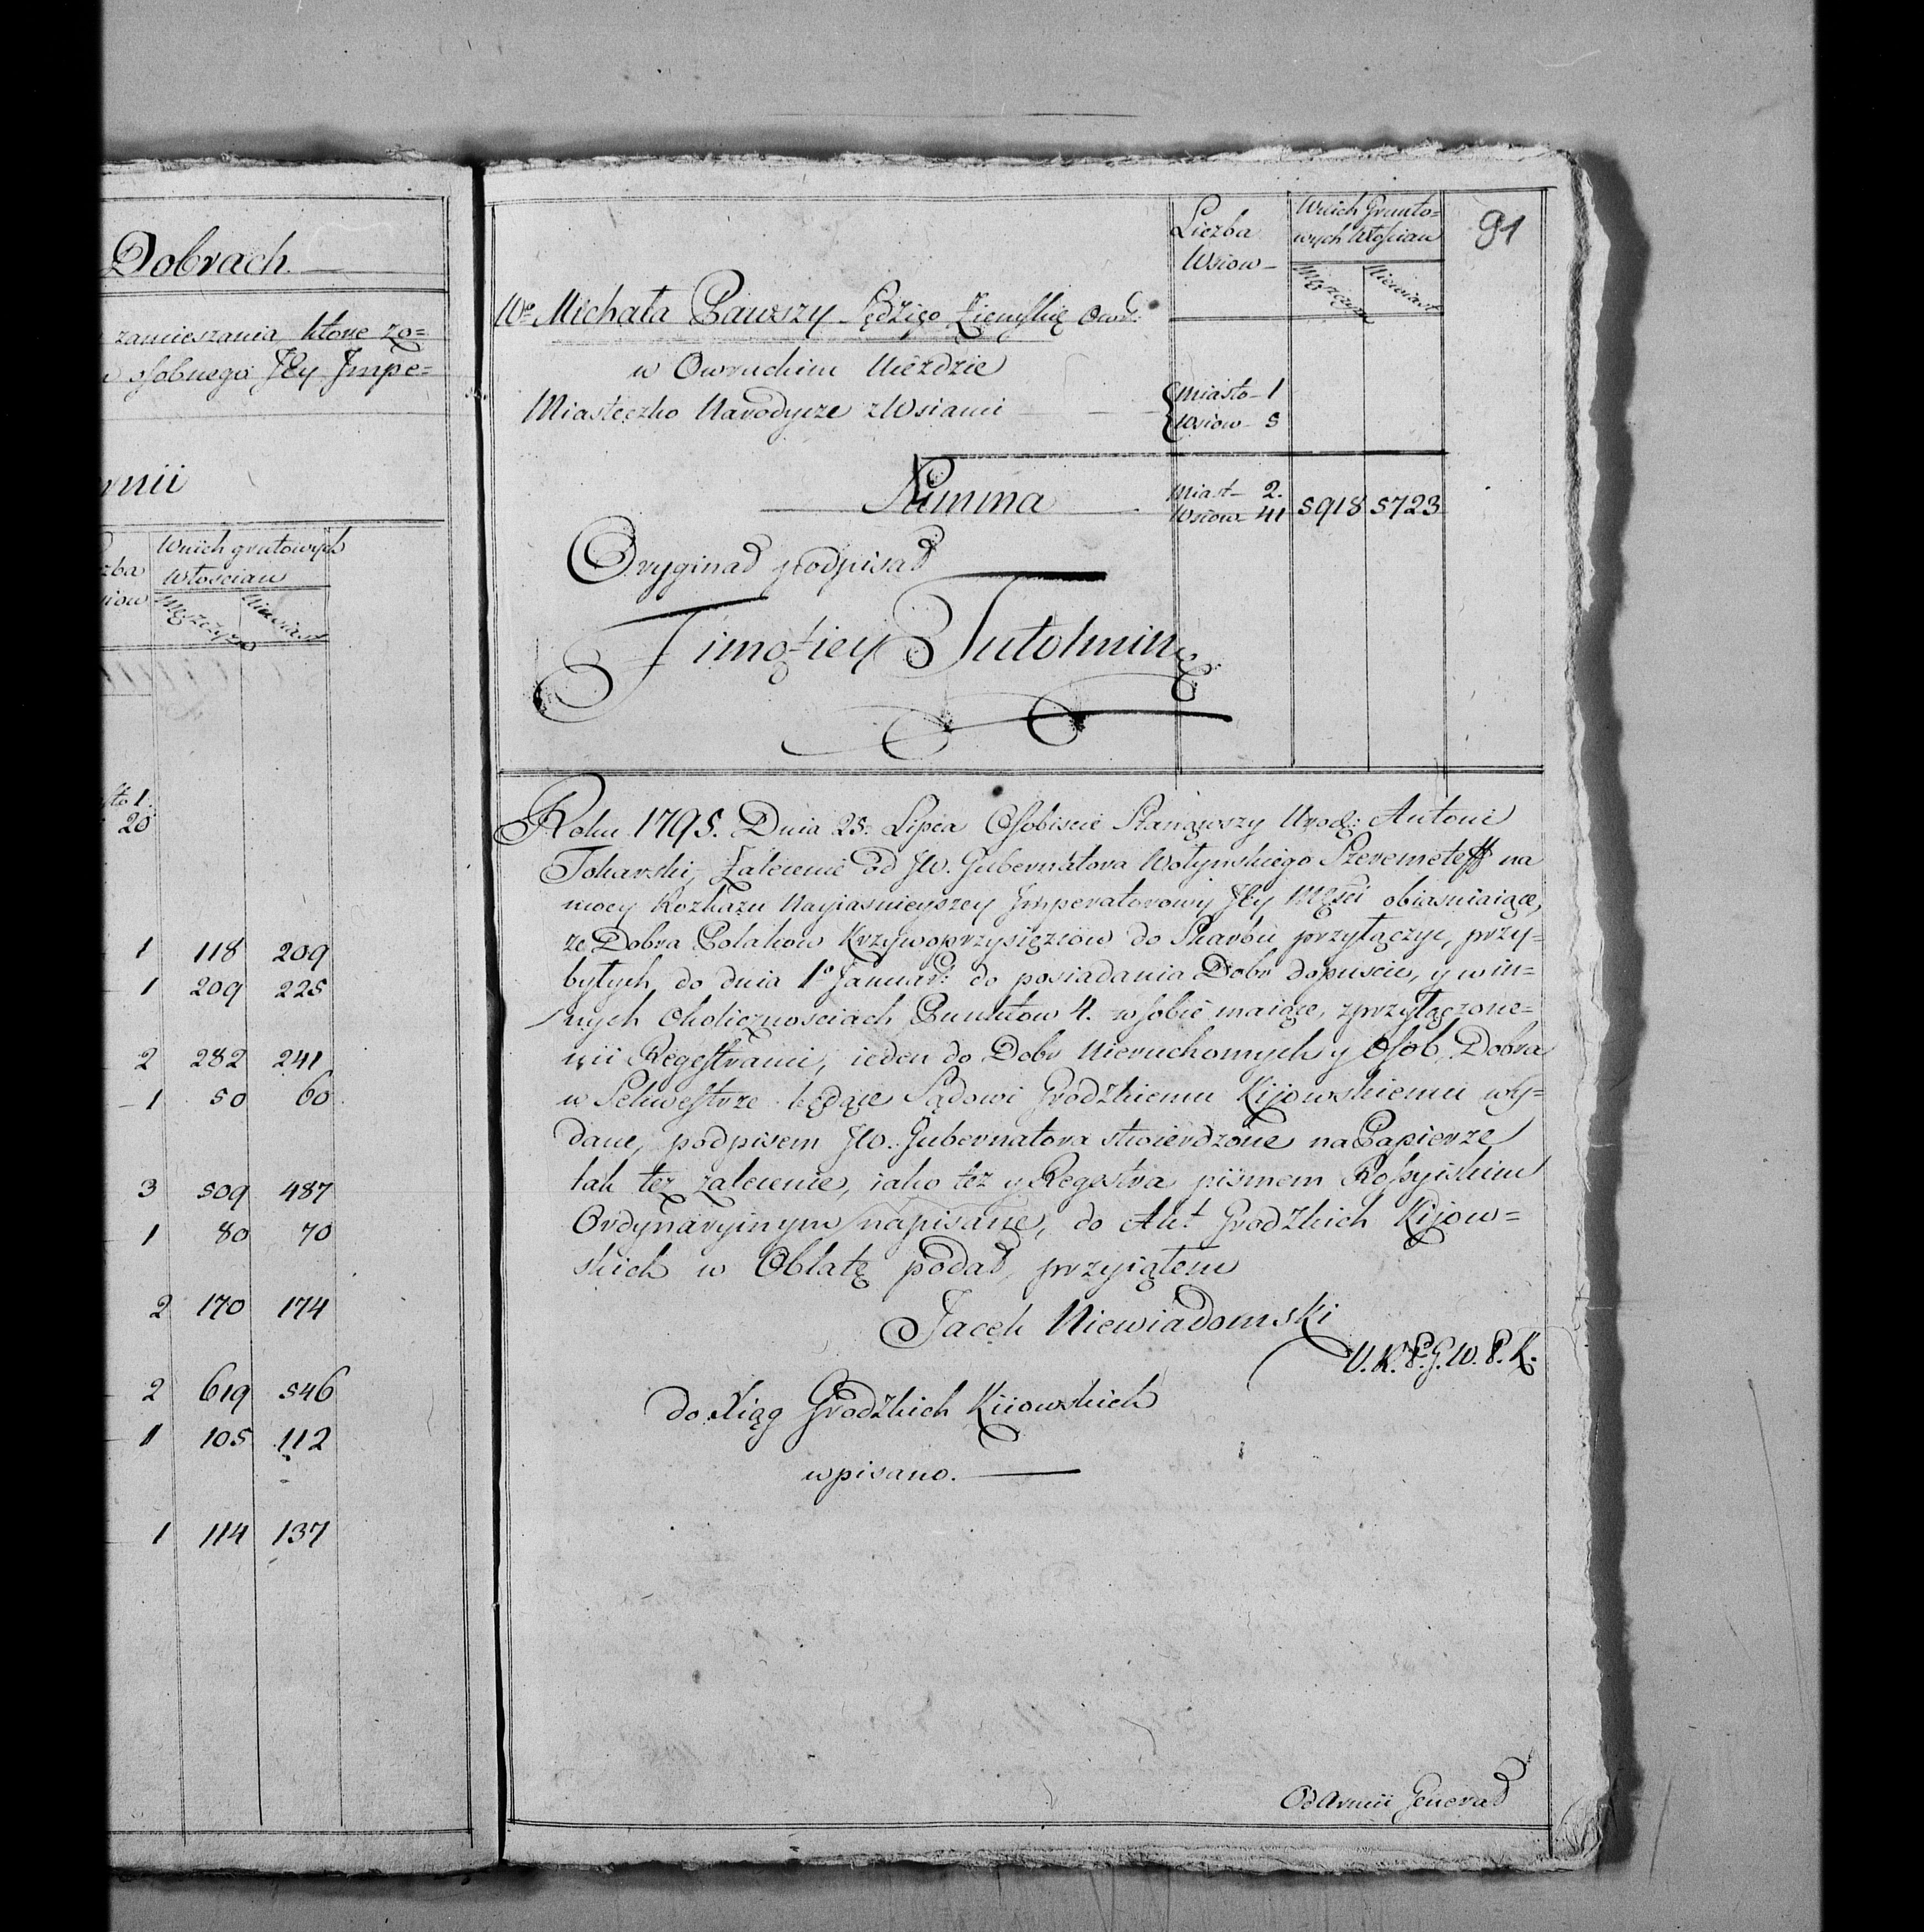 Dobrach
zamieszania, ktore zo=
osobnego JEy Impe=
Wnich grutowych
Włościan
Męszczyzn
Niewiast
20
1 118 209
1 209 225
2 282 241
1 50 60
3 509 487
1 80 70
2 170 174
2 619 546
1 105 112
1 114 137
91
Liczba
Wsiow
Wnich Grunto=
wych Włoscian
Męszczyzn
Niewiast
Wo Michała Pawszy Sędzigo Ziemskię Owr:
w Owruckim Uiezdzie
Miasteczko Narodycze z Wsiami
Miasto 1
Wsiow 5
Summa
Miast 2.
Wsiow 41 5918 5723
Oryginał podpisał
Timofiey Tutolmin
Roku 1795. Dnia 25. Lipca Osobiscie Stanąwszy Urodz: Antoni
Tokarski, Zalecenie od JW. Gubernatora Wołynskiego Szeremeteff na
mocy Rozkazu Nayiasnieyszey Imperatorowy JEy Mości obiasniaiące,
ze Dobra Polakow Krzywoprzysięzcow do Skarbu przyłączyc, przy=
byłych do dnia 1o Januar: do posiadania Dobr dopuscic, y w in=
nych Okolicznosciach Punktow 4. w sobie maiące, z przyłączone=
mi Regestrami, ieden do Dobr Nieruchomych y Osob, Dobra
w Sekwestrze będące Sądowi Grodzkiemu Kijowskiemu wy=
dane, podpisem JW. Gubernatora stwierdzone na Papierze
tak tez zalecenie, iako tez y Regestra pismem Rossyiskim
Ordynaryinym napisane, do Akt Grodzkich Kijow=
skich w Oblatę podał, przyiąłem
Jacek Niewiadomski
V.R.P.G.W.P.K.
do Xiąg Grodzkich Kiiowskich
wpisano.
Od Armii Generał